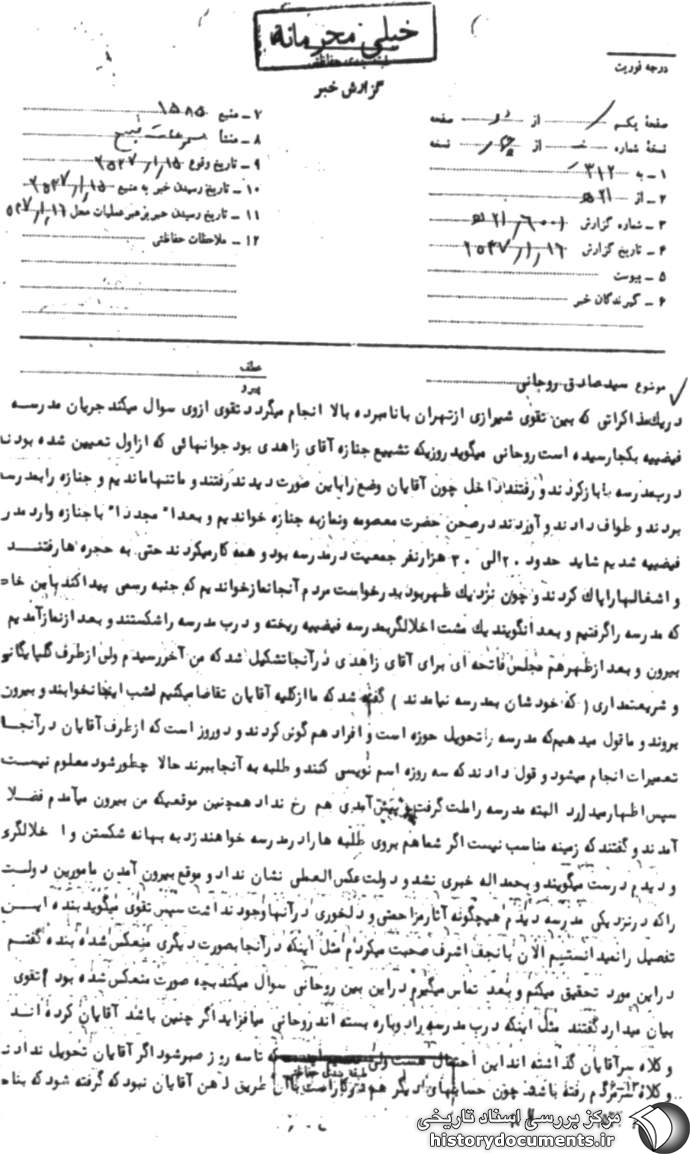 خیلی محرمانه
گزارش خبر
درجه فوریت
صفحه یکم از دو صفحه
نسخه شماره از نسخه
۱ - به ۳۱۲
۲ - از ۲۱ ه
۳ - شماره گزارش
۴ - تاریخ گزارش
۵ - پیوست
۶ - گیرندگان خبر
۷ - منبع ۱۵۸۵
۸ - منشأ
۹ - تاریخ وقوع
۱۰ - تاریخ رسیدن خبر به منبع
۱۱ - تاریخ رسیدن خبر برهبر عملیات محل
۱۲ - ملاحظات حفاظتی
موضوع سید صادق روحانی
عطف
پیرو
در یک مذاکراتی که بین تقوی شیرازی از تهران با نامبرده بالا انجام میگردد تقوی ازوی سوال میکند جریان مدرسه
فیضییه بکجا رسیده است روحانی میگوید روزیکه تشییع جنازه آقای زاهدی بود جوانهائی که از اول تعیین شده بودند
درب مدرسه را باز کردند و رفتند داخل چون آقایان وضع را باین صورت دیدند رفتند و ما تنها ماندیم و جنازه را بمدرسه
بردند و طواف دادند و آوردند در صحن حضرت معصومه و نماز به جنازه خواندیم و بعدا" مجددا" با جنازه وارد مدر
فیضییه شدیم شاید حدود ۲۰ الی ۳۰ هزار نفر جمعیت در مدرسه بود و همه کار میکردند حتی به حجره ها رفتند
و اشغالها را پاک کردند و چون نزدیک ظهر بود بدرخواست مردم آنجا نماز خواندیم که جنبه رسمی پیدا کند باین خا
که مدرسه را گرفتیم و بعد انگویند یک مشت اخلالگر بمدرسه فیضییه ریخته و درب مدرسه را شکستند و بعد از نماز آمدیم
بیرون و بعد از ظهر هم مجلس فاتحه ای برای آقای زاهدی در آنجا تشکیل شد که من آخر رسیدم ولی از طرف گلپایگانی
و شریعتمداری ( که خودشان بمدرسه نیامدند ) گفته شد که ما از کلیه آقایان تقاضا میکنیم لشب اینجا نخوابند و بیرون
بروند و ما قول میدهیم که مدرسه را تحویل حوزه است و افراد هم گوش کردند و دو روز است که از طرف آقایان در آنجا
تعمیرات انجام میشود و قول دادند که سه روزه اسم نویسی کنند و طلبه به آنجا ببرند حالا چطور شود معلوم نیست
سپس اظهار میدارد البته مدرسه را ملت گرفت و پیش آمدی هم رخ نداد همچنین موقعیکه من بیرون میآمدم فضلا
آمدند و گفتند که زمینه مناسب نیست اگر شما هم بروی طلبه ها را در مدرسه خواهند زد به بهانه شکستن و اخلالگری
و دیدم درست میگویند و بحمداله خبری نشد و دولت عکس العملی نشان نداد و موقع بیرون آمدن مامورین دولت
را که در نزدیکی مدرسه دیدم هیچگونه آثار مزاحمتی و دلخوری در آنها وجود نداشت سپس تقوی میگوید بنده این
تفصیل را نمیدانستیم الان با نجف اشرف صحبت میکردم مثل اینکه در آنجا بصورت دیگری منعکس شده بنده گفتم
در این مورد تحقیق میکنم و بعد تماس میگیرم در این بین روحانی سوال میکند بچه صورت منعکس شده بود تقوی
بیان میدارد گفتند مثل اینکه درب مدرسه را دوباره بسته اند روحانی میافزاید اگر چنین باشد آقایان کرده اند
و کلاه سر آقایان گذاشته اند این احتمال هست ولی که تا سه روز صبر شود اگر آقایان تحویل ندادند
و کلاه سر مردم رفته باشد چون حسابهای دیگر هم در کار است باآن طریق ذهن آقایان نبود که گرفته شود که بناء
طبقه بندی حفاظتی
مرکز بررسی اسناد تاریخی
historydocuments.ir